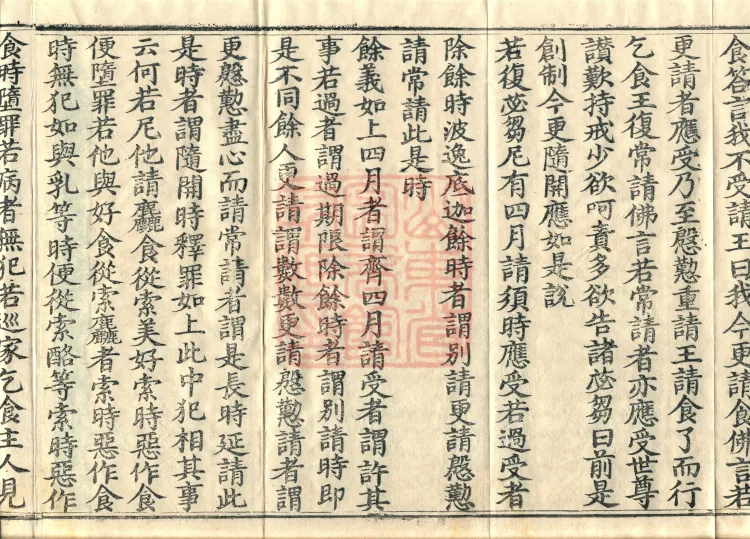 食答言我不受請王曰我今更請飲佛言若
更請者應受乃至慇懃重請王請食了而行
乞食王復常請佛言若常請者亦應受世尊
讚歎持戒少欲呵責多欲告諸苾芻曰前是
創制今更隨開應如是說
若復苾芻尼有四月請須時應受若過受者
除餘時波逸底迦餘時者謂別請更請慇懃
請常請此是時
餘義如上四月者謂齊四月請受者謂許其
事若過者謂過期限除餘時者謂別請時即
是不同餘人更請謂數數更請慇懃請者謂
更慇懃盡心而請常請者謂是長時延請此
是時者謂隨開時釋罪如上此中犯相其事
云何若尼他請麤食從索美好索時惡作食
便墮罪若他與好食從索麤者索時惡作食
時無犯如與乳等時便從索酪等索時惡作
食時墮罪若病者無犯若巡家乞食主人見